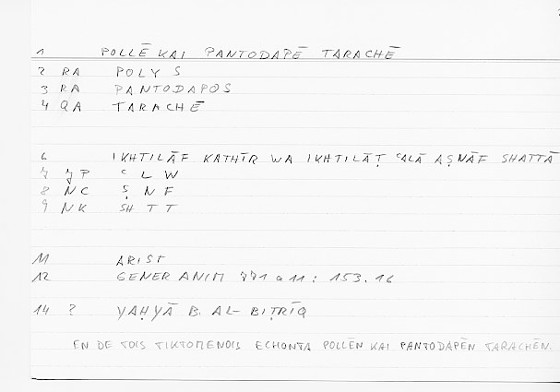 1 POLLĒ KAI PANTODAPĒ TARACHĒ
2 RA POLYS
3 RA PANTODAPOS
4 QA TARACHĒ
6 IKHTILĀF KATHĪR WA IKHTILĀṬ ʿALĀ AṢNĀF SHATTĀ
7 JP ʿLW
8 NC ṢNF
9 NK SHTT
11 ARIST
12 GENER ANIM 771 a 11 : 153.16
14 ? YAḤYĀ B. AL-BIṬRĪQ
EN DE TOIS TIKTOMENOIS ECHONTA POLLĒN KAI PANTODAPĒN TARACHĒN.